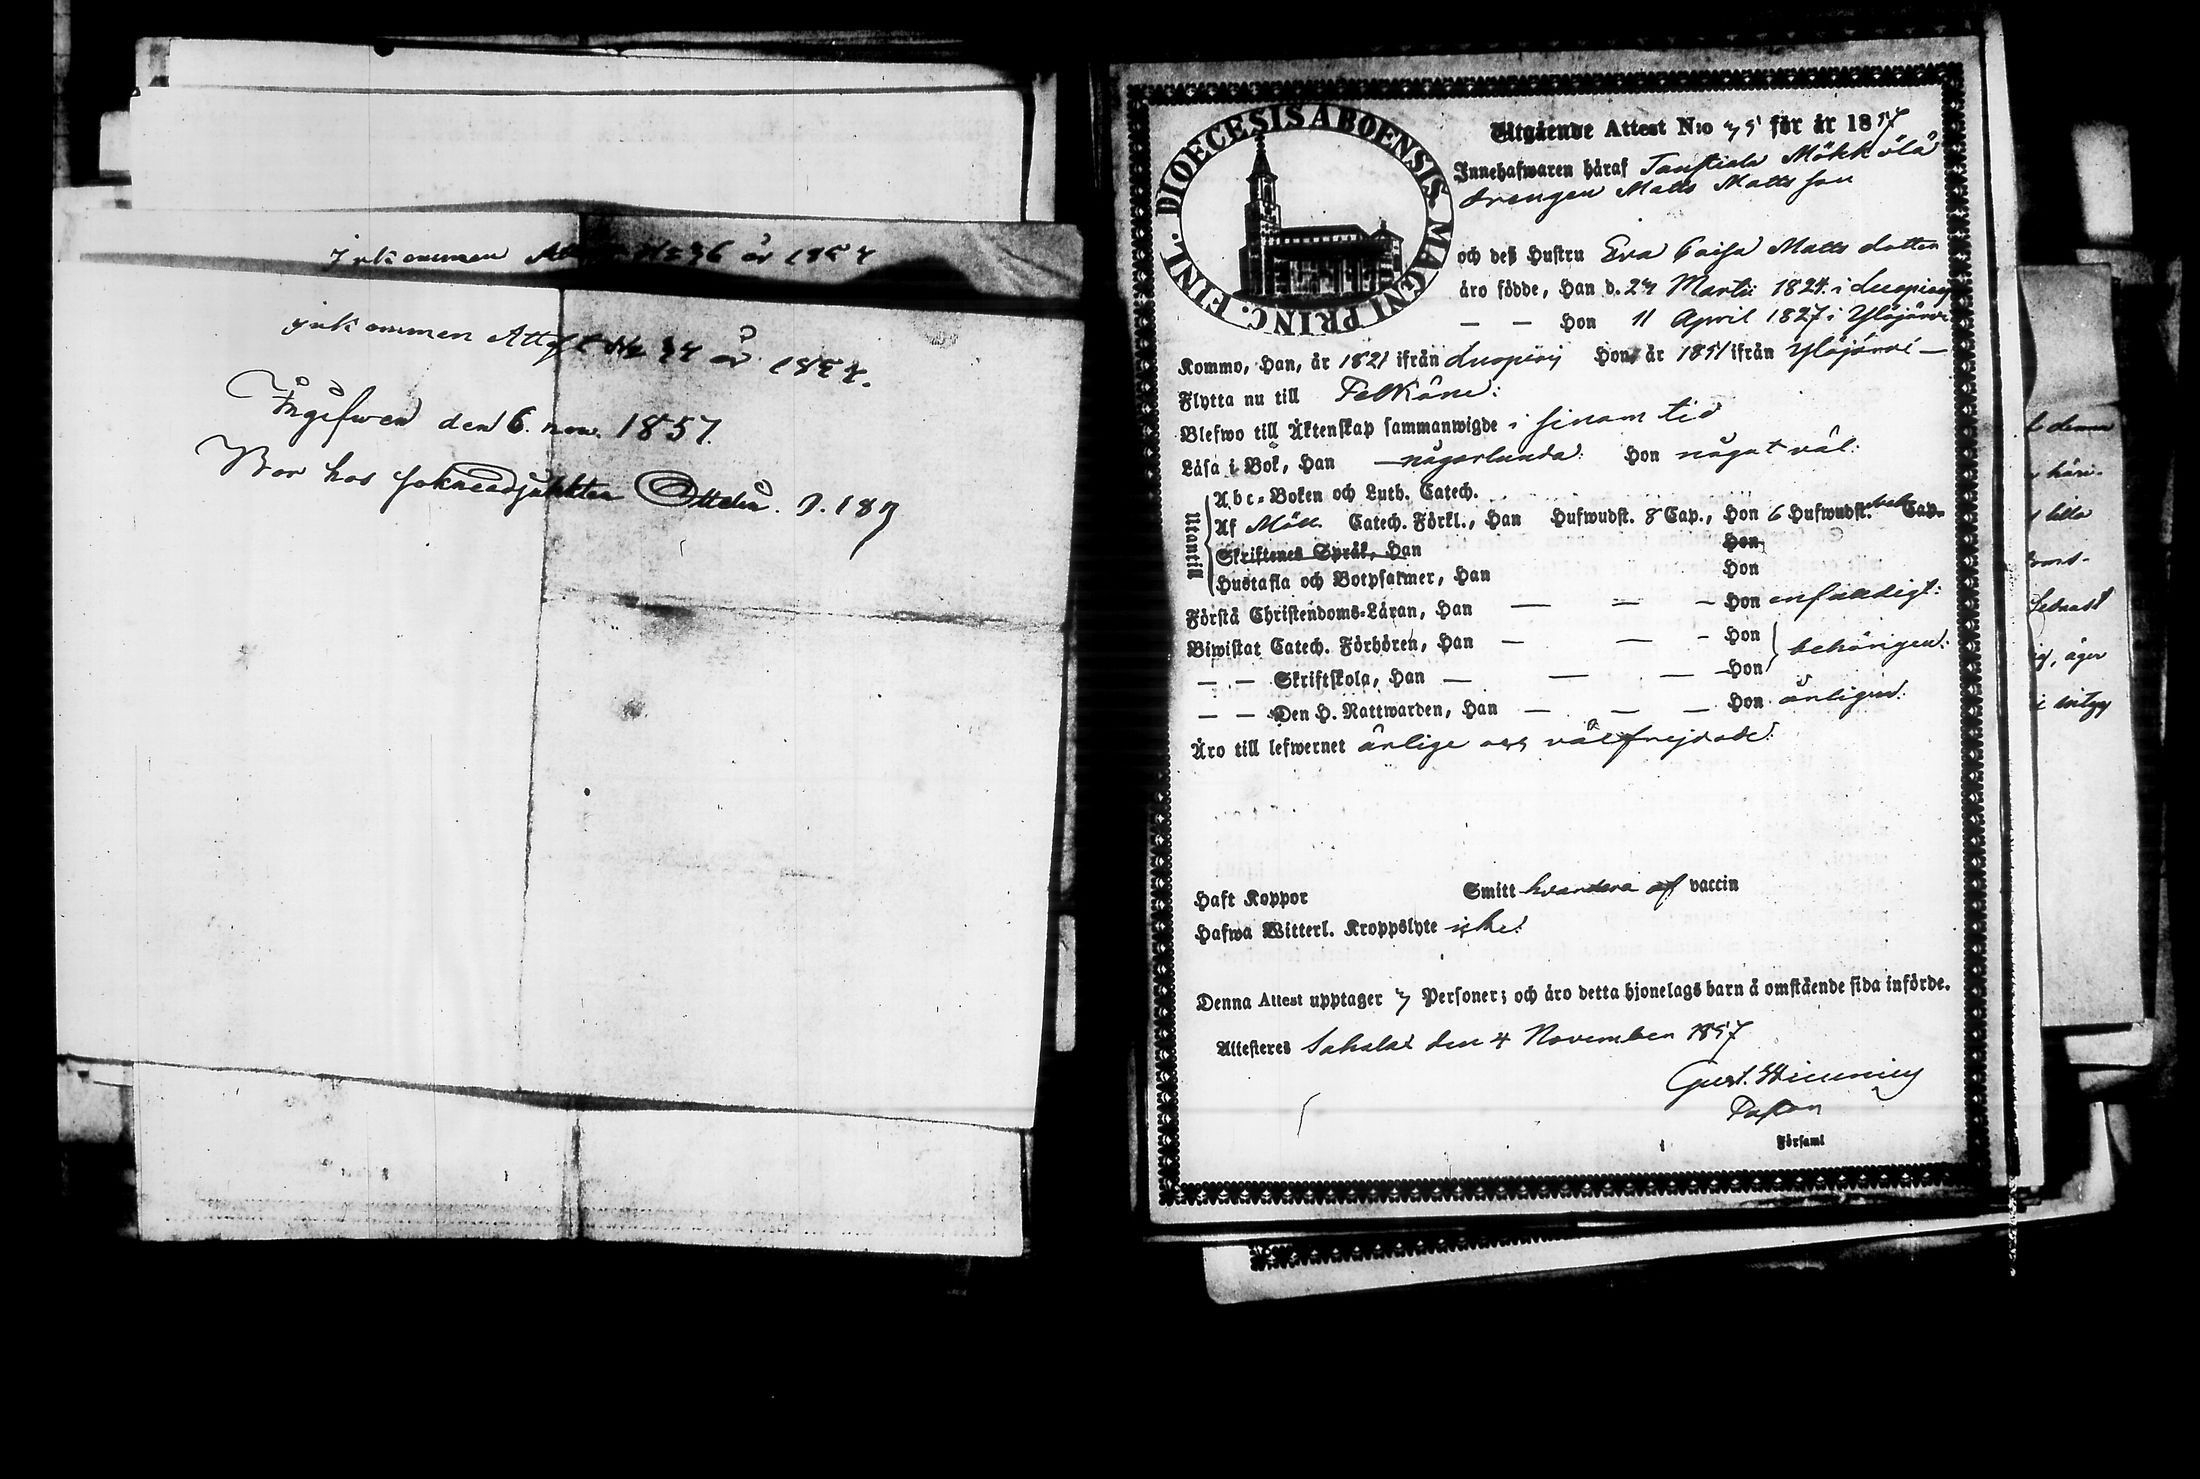 Inkommen Attest No 76 år 1857
Inkommen Attest No 77 år 1857.
Ingifwen den 6. nov. 1857.
Bor hos sokneadjunkten p. 187
DIOECESIS ABOENSIS. MAGNI PRINC. FINL.
Utgående Attest N:o 75 för år 1857
Innehafwaren häraf Mökkölä
drengen Matts Mattsson
och deß Hustru Eva Caisa Matts dotter
äro födde, Han d. 24 Martii 1824 i Luopiois
— — Hon 11 April 1827 i Ylöjärvi
Kommo, Han, år 1821 ifrån Luopiois Hon, år 1851 ifrån Ylöjärvi —
Flytta nu till Pelkäne:
Blefwo till Äktenskap sammanwigde i sinom tid
Läsa i Bok, Han någorlunda: Hon något väl:
Utantill
Abc-Boken och Luth. Catech.
Af Möll. Catech. Förkl., Han Hufwudst. 8 Cap., Hon 6 Hufwudst. Cap.
Skriftenes Språk, Han Hon
Hustafla och Botpsalmer, Han Hon
Förstå Christendoms-Läran, Han — — — Hon enfaldigt:
Biwistat Catech. Förhören, Han — — — Hon behörigen:
— — Skriftskola, Han — — — Hon
— — Den H. Nattwarden, Han — — — Hon årligen:
Äro till lefwernet ärlige och välfrejdade:
Haft Koppor Smitt hvardera af vaccin
Hafwa Witterl. Kroppslyte icke:
Denna Attest upptager 7 Personer; och äro detta hjonelags barn å omstående sida införde.
Attesteras Sahalax den 4 November 1857
Gust.
Pastor
Församl